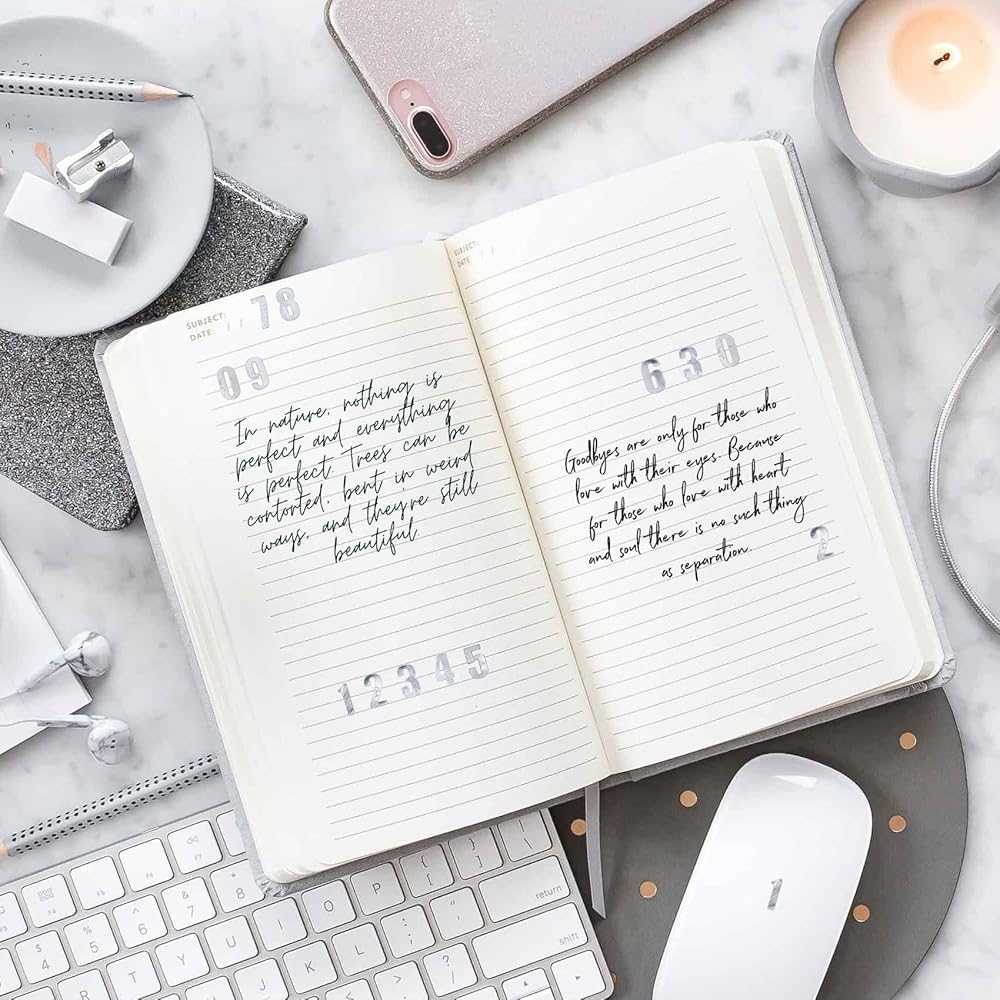 SUBJECT:
DATE: / /
78
09
In nature, nothing is
perfect and everything
is perfect. Trees can be
contorted, bent in weird
ways, and they're still
beautiful.
12345
SUBJECT:
DATE: / /
630
Goodbyes are only for those who
love with their eyes. Because
for those who love with heart
and soul there is no such thing
as separation.
2
1
* 8
& 7
^ 6
% 5
$ 4
T Y U I O P { [ } ] | \
return
J K L : ; " '
shift
> . ? /